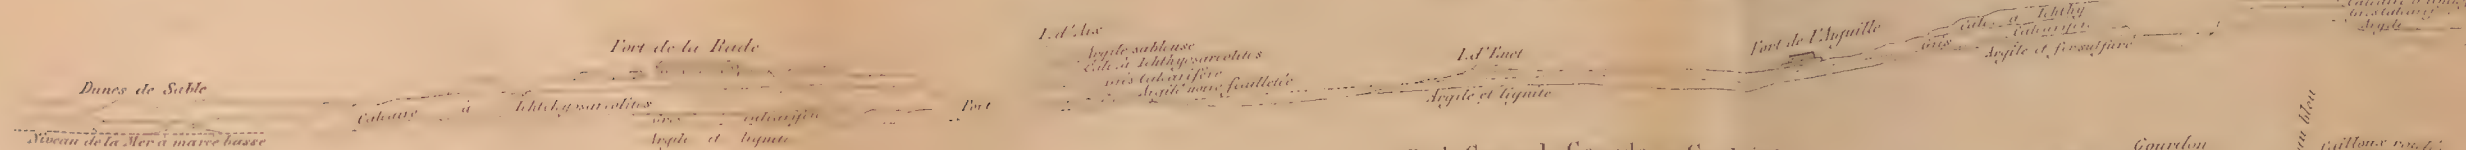 Dunes de Sable
Niveau de la Mer à marée basse
Calcaire à Ichthyosarcolites
Fort de la Rade
Argile et lignite
Fort
I. d'Aix
Argile sableuse
Calc. à Ichthyosarcolites
Grès Calcarifère
Argile noire feuilletée
I. d'Enet
Argile et lignite
Fort de l'Aiguille
Calc. à Ichthy
Grès Calcarifère
Argile et fer sulfuré
Argile
Gourdon
bleu
Cailloux